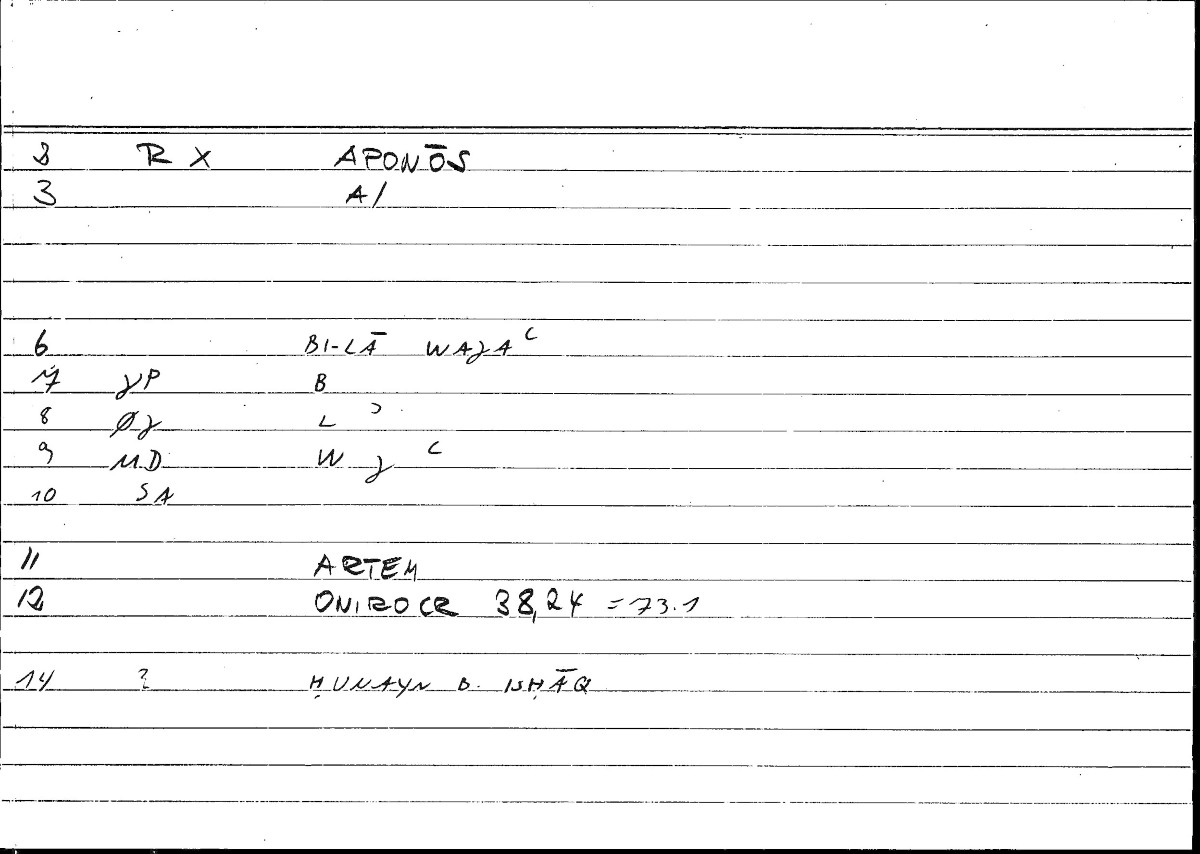 2 RX APONŌS
3 A/
6 BI-LĀ WAJAʿ
7 JP B
8 ØJ L ʾ
9 MD W J ʿ
10 SA
11 ARTEM
12 ONIROCR 38,24 = 73.1
14 ? ḤUNAYN B. ISḤĀQ